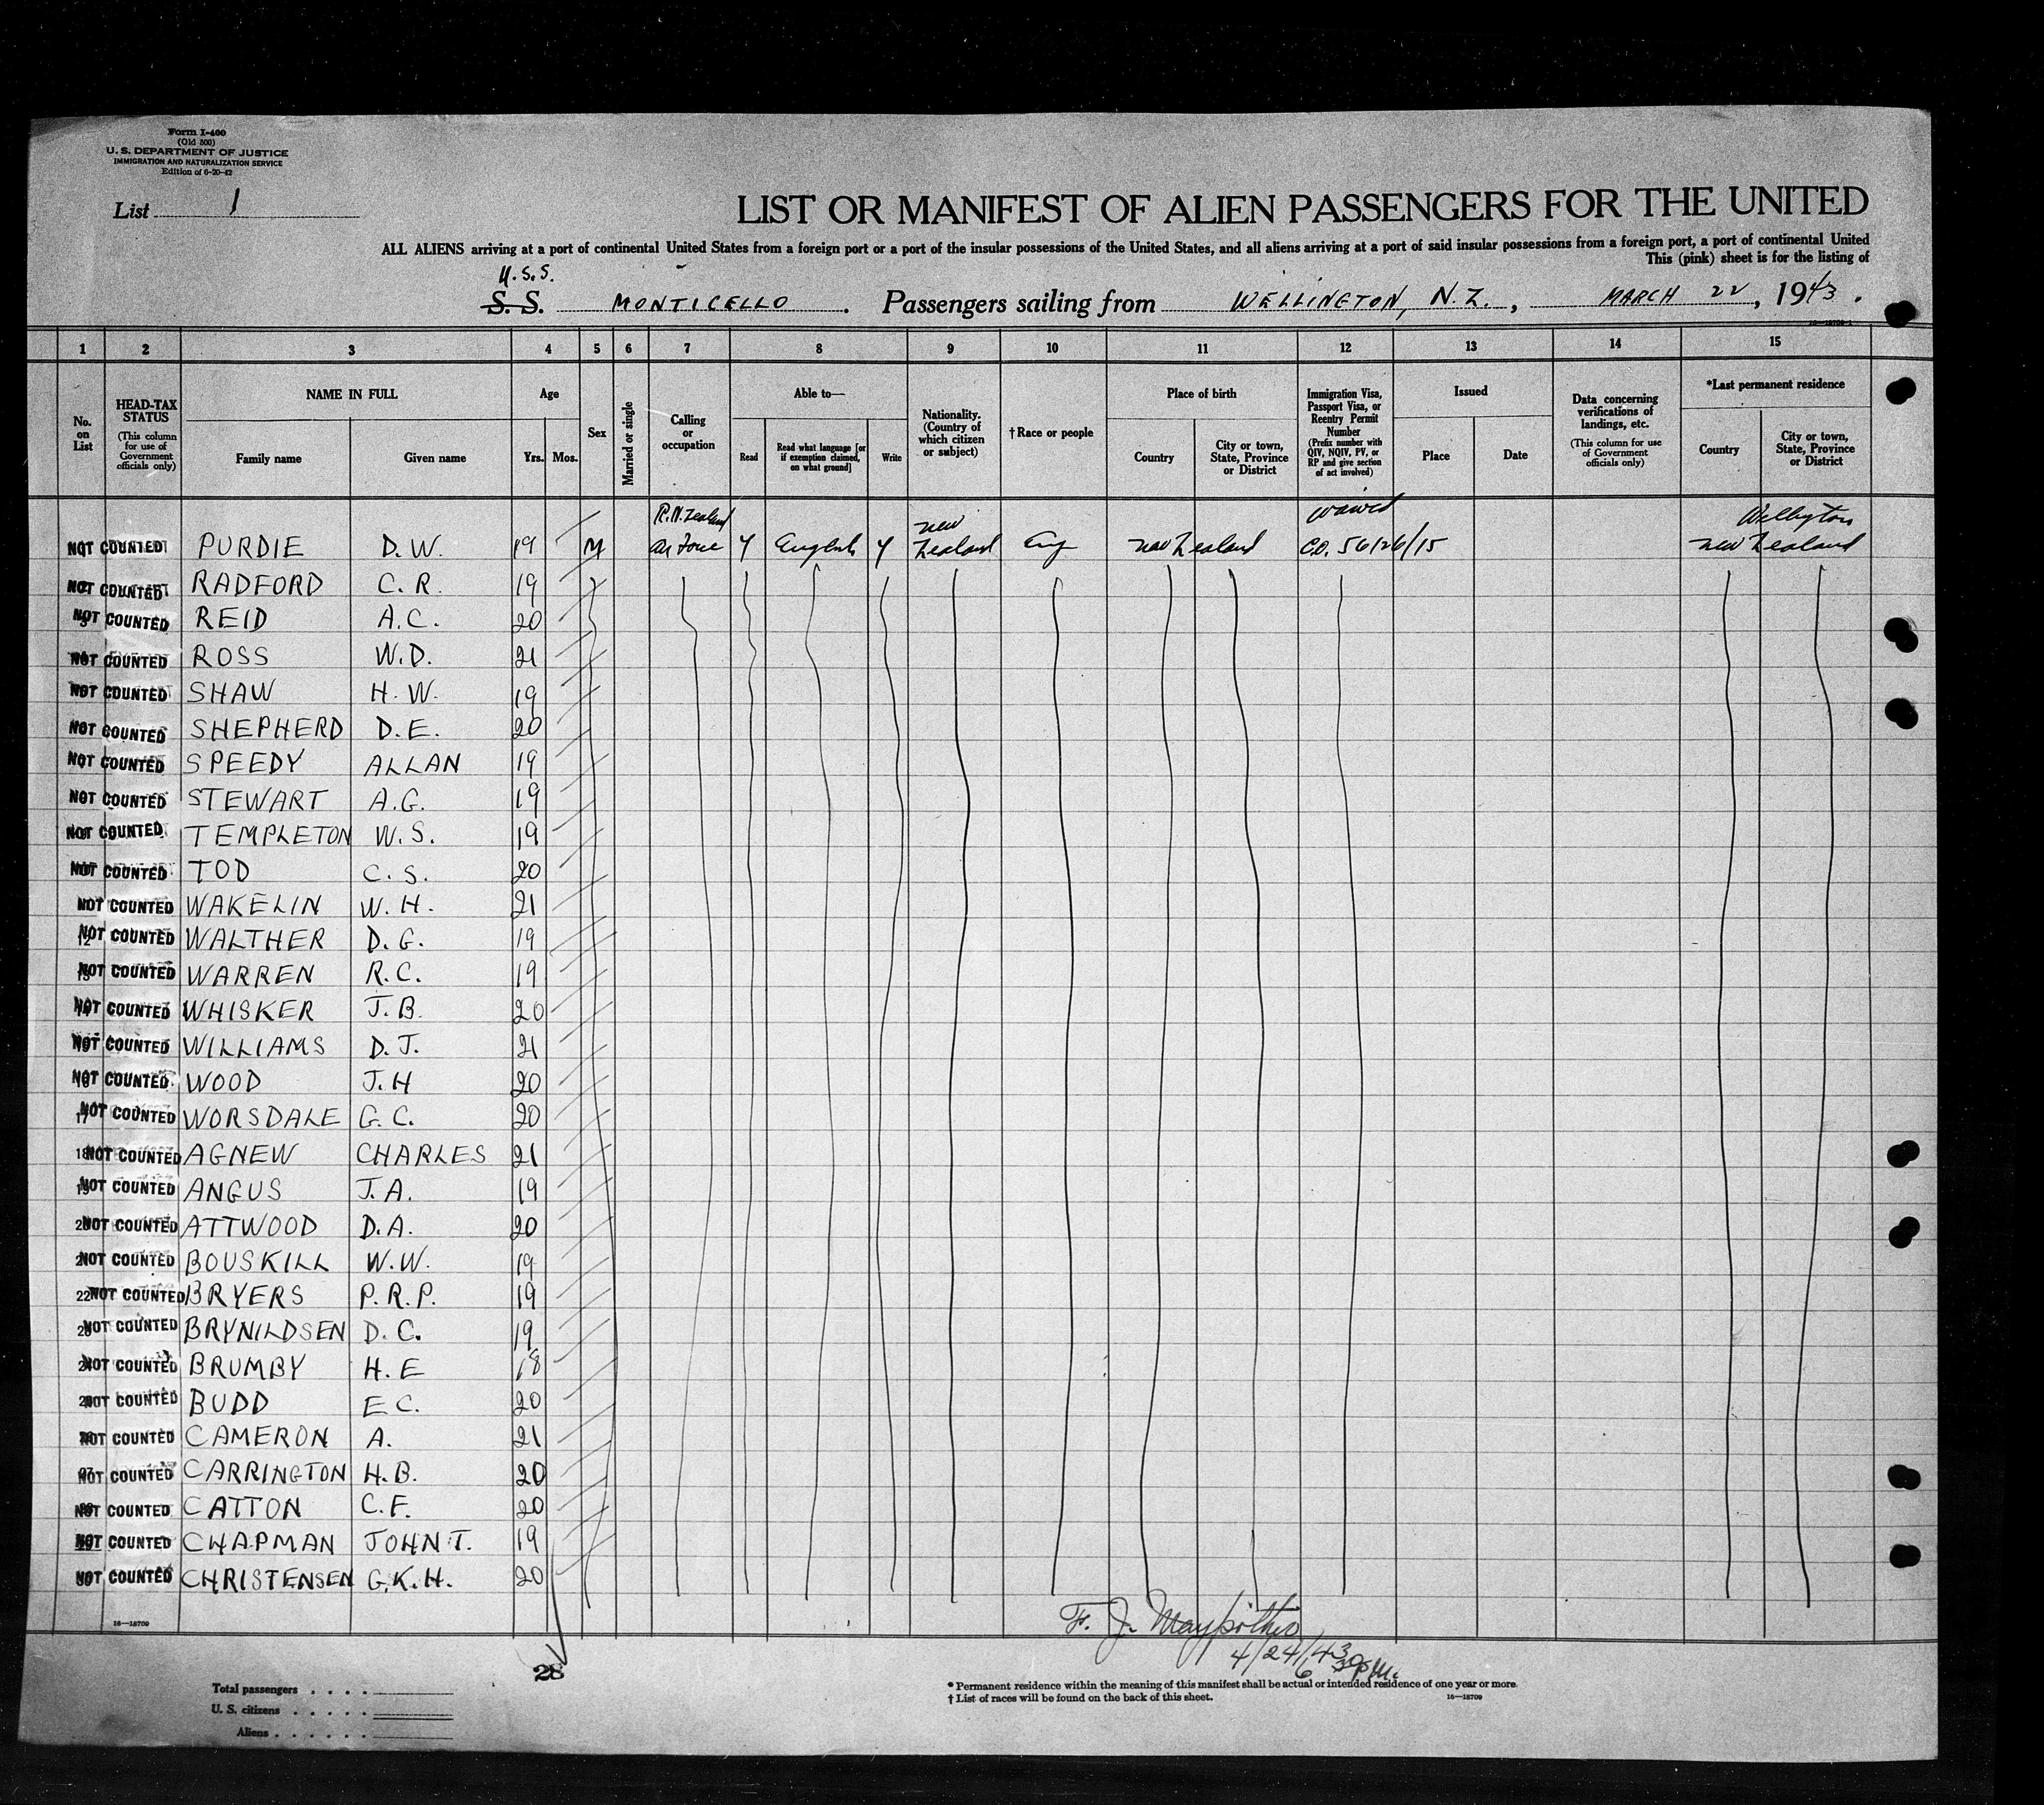 Form I-400
(Old 500)
U. S. DEPARTMENT OF JUSTICE
IMMIGRATION AND NATURALIZATION SERVICE
Edition of 6-20-42
List 1
LIST OR MANIFEST OF ALIEN PASSENGERS FOR THE UNITED
ALL ALIENS arriving at a port of continental United States from a foreign port or a port of the insular possessions of the United States, and all aliens arriving at a port of said insular possessions from a foreign port, a port of continental United
This (pink) sheet is for the listing of
U.S.S.
S. S. MONTICELLO . Passengers sailing from WELLINGTON, N.Z. , MARCH 22 , 1943 .
1 2 3 4 5 6 7 8 9 10 11 12 13 14 15
No. on List
HEAD-TAX STATUS
(This column for use of Government officials only)
NAME IN FULL
Family name Given name
Age
Yrs. Mos.
Sex
Married or single
Calling or occupation
Able to—
Read
Read what language [or if exemption claimed, on what ground]
Write
Nationality. (Country of which citizen or subject)
† Race or people
Place of birth
Country
City or town, State, Province or District
Immigration Visa, Passport Visa, or Reentry Permit Number
(Prefix number with QIV, NQIV, PV, or RP and give section of act involved)
Issued
Place Date
Data concerning verifications of landings, etc.
(This column for use of Government officials only)
*Last permanent residence
Country
City or town, State, Province or District
R.N.Zealand new waived Wellington
NOT COUNTED PURDIE D.W. 19 M Air Force Y English Y Zealand Eng new Zealand C.O. 56126/15 new Zealand
NOT COUNTED RADFORD C. R. 19
NOT COUNTED REID A.C. 20
NOT COUNTED ROSS W.D. 21
NOT COUNTED SHAW H. W. 19
NOT COUNTED SHEPHERD D. E. 20
NOT COUNTED SPEEDY ALLAN 19
NOT COUNTED STEWART A.G. 19
NOT COUNTED TEMPLETON W. S. 19
NOT COUNTED TOD C. S. 20
NOT COUNTED WAKELIN W. H. 21
12 NOT COUNTED WALTHER D. G. 19
NOT COUNTED WARREN R.C. 19
NOT COUNTED WHISKER J. B. 20
NOT COUNTED WILLIAMS D. J. 21
NOT COUNTED WOOD J. H 20
17 NOT COUNTED WORSDALE G. C. 20
18 NOT COUNTED AGNEW CHARLES 21
19 NOT COUNTED ANGUS J. A. 19
NOT COUNTED ATTWOOD D. A. 20
NOT COUNTED BOUSKILL W. W. 19
22 NOT COUNTED BRYERS P. R. P. 19
NOT COUNTED BRYNILDSEN D. C. 19
NOT COUNTED BRUMBY H. E 18
NOT COUNTED BUDD E. C. 20
NOT COUNTED CAMERON A. 21
NOT COUNTED CARRINGTON H. B. 20
NOT COUNTED CATTON C. F. 20
NOT COUNTED CHAPMAN JOHN T. 19
NOT COUNTED CHRISTENSEN G. K. H. 20
16—18709
F. J.
4/24/43
28
6 30 P.M.
Total passengers . . . .
U. S. citizens . . . . .
Aliens . . . . . .
* Permanent residence within the meaning of this manifest shall be actual or intended residence of one year or more.
† List of races will be found on the back of this sheet. 16—18709